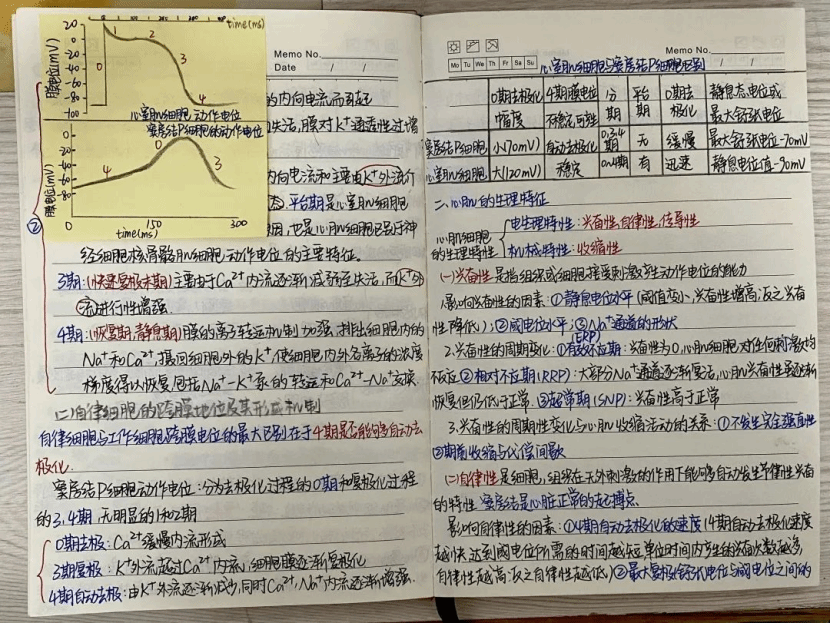 20
0
-20
-40
-60
-80
-100
膜电位(mV)
time(ms)
0
1
2
3
4
心室肌细胞动作电位
窦房结P细胞的动作电位
0
-20
-40
-60
-80
膜电位(mV)
4
0
3
0
150
300
time(ms)
Memo No.
Date / /
的内向电流而引起
失活,膜对K⁺通透性过增
内向电流和主要由K⁺外流介
态。平期是心室肌细胞
因,也是心肌细胞已区于神
②
经细胞核骨骼肌细胞动作电位的主要特征。
3期:(快速复极末期)主要由于Ca²⁺内流逐渐减弱至失活,而K⁺外
流进行性增强
4期:(恢复期,静息期)膜的离子转运机制加强,排出细胞内的
Na⁺和Ca²⁺,摄回细胞外的K⁺,使细胞内外各离子的浓度
梯度得以恢复,包括Na⁺-K⁺泵的转运和Ca²⁺-Na⁺交换
(二)自律细胞的跨膜地位及其形成机制
自律细胞与工作细胞跨膜电位的最大区别在于4期是否能够自动去
极化.
窦房结P细胞动作电位:分为去极化过程的0期和复极化过程
的3,4期,无明显的1和2期
0期去极:Ca²⁺缓慢内流形式
3期复极:K⁺外流超过Ca²⁺内流,细胞膜逐渐复极化
4期自动去极:由K⁺外流逐渐减少,同时Ca²⁺,Na⁺内流逐渐增强.
Memo No.
Mo Tu We Th Fr Sa Su
Date / /
心室肌细胞与窦房结P细胞区别
0期去极化幅度 4期膜电位不稳定可性 分期 平台期 0期去极化 静息态电位或最大舒张电位
窦房结P细胞 小(70mV) 自动去极化 0,3,4期 无 缓慢 最大舒张电位-70mV
心室肌细胞 大(120mV) 稳定 0~4期 有 迅速 静息电位值-90mV
二、心肌的生理特征
心肌细胞的生理特征
电生理特性:兴奋性,自律性,传导性
机械特性:收缩性
(一)兴奋性是指组织或细胞接受刺激产生动作电位的能力
影响兴奋性的因素:①静息电位水平(阈值变小、兴奋性增高;反之兴奋
性降低);②阈电位水平;③Na⁺通道的形状
(ERP)
2.兴奋性的周期变化:①有效不应期:兴奋性为0,心肌细胞对任何刺激均
不反应②相对不应期(RRP):大部分Na⁺通道逐渐复活,心肌兴奋性虽逐渐
恢复但仍低于正常③超常期(SNP):兴奋性高于正常
3.兴奋性的周期性变化与心肌收缩活动的关系:①不发生完全强直性
②期前收缩与代偿间歇
(二)自律性是细胞,组织在无外刺激的作用下能够自动发生节律性兴奋
的特性 窦房结是心脏正常的起搏点
影响自律性的因素:①4期自动去极化的速度(4期自动去极化速度
越快,达到阈电位所需的时间越短,单位时间内产生的兴奋次数越多,
自律性越高;反之自律性越低)②最大复极舒张电位与阈电位之间的